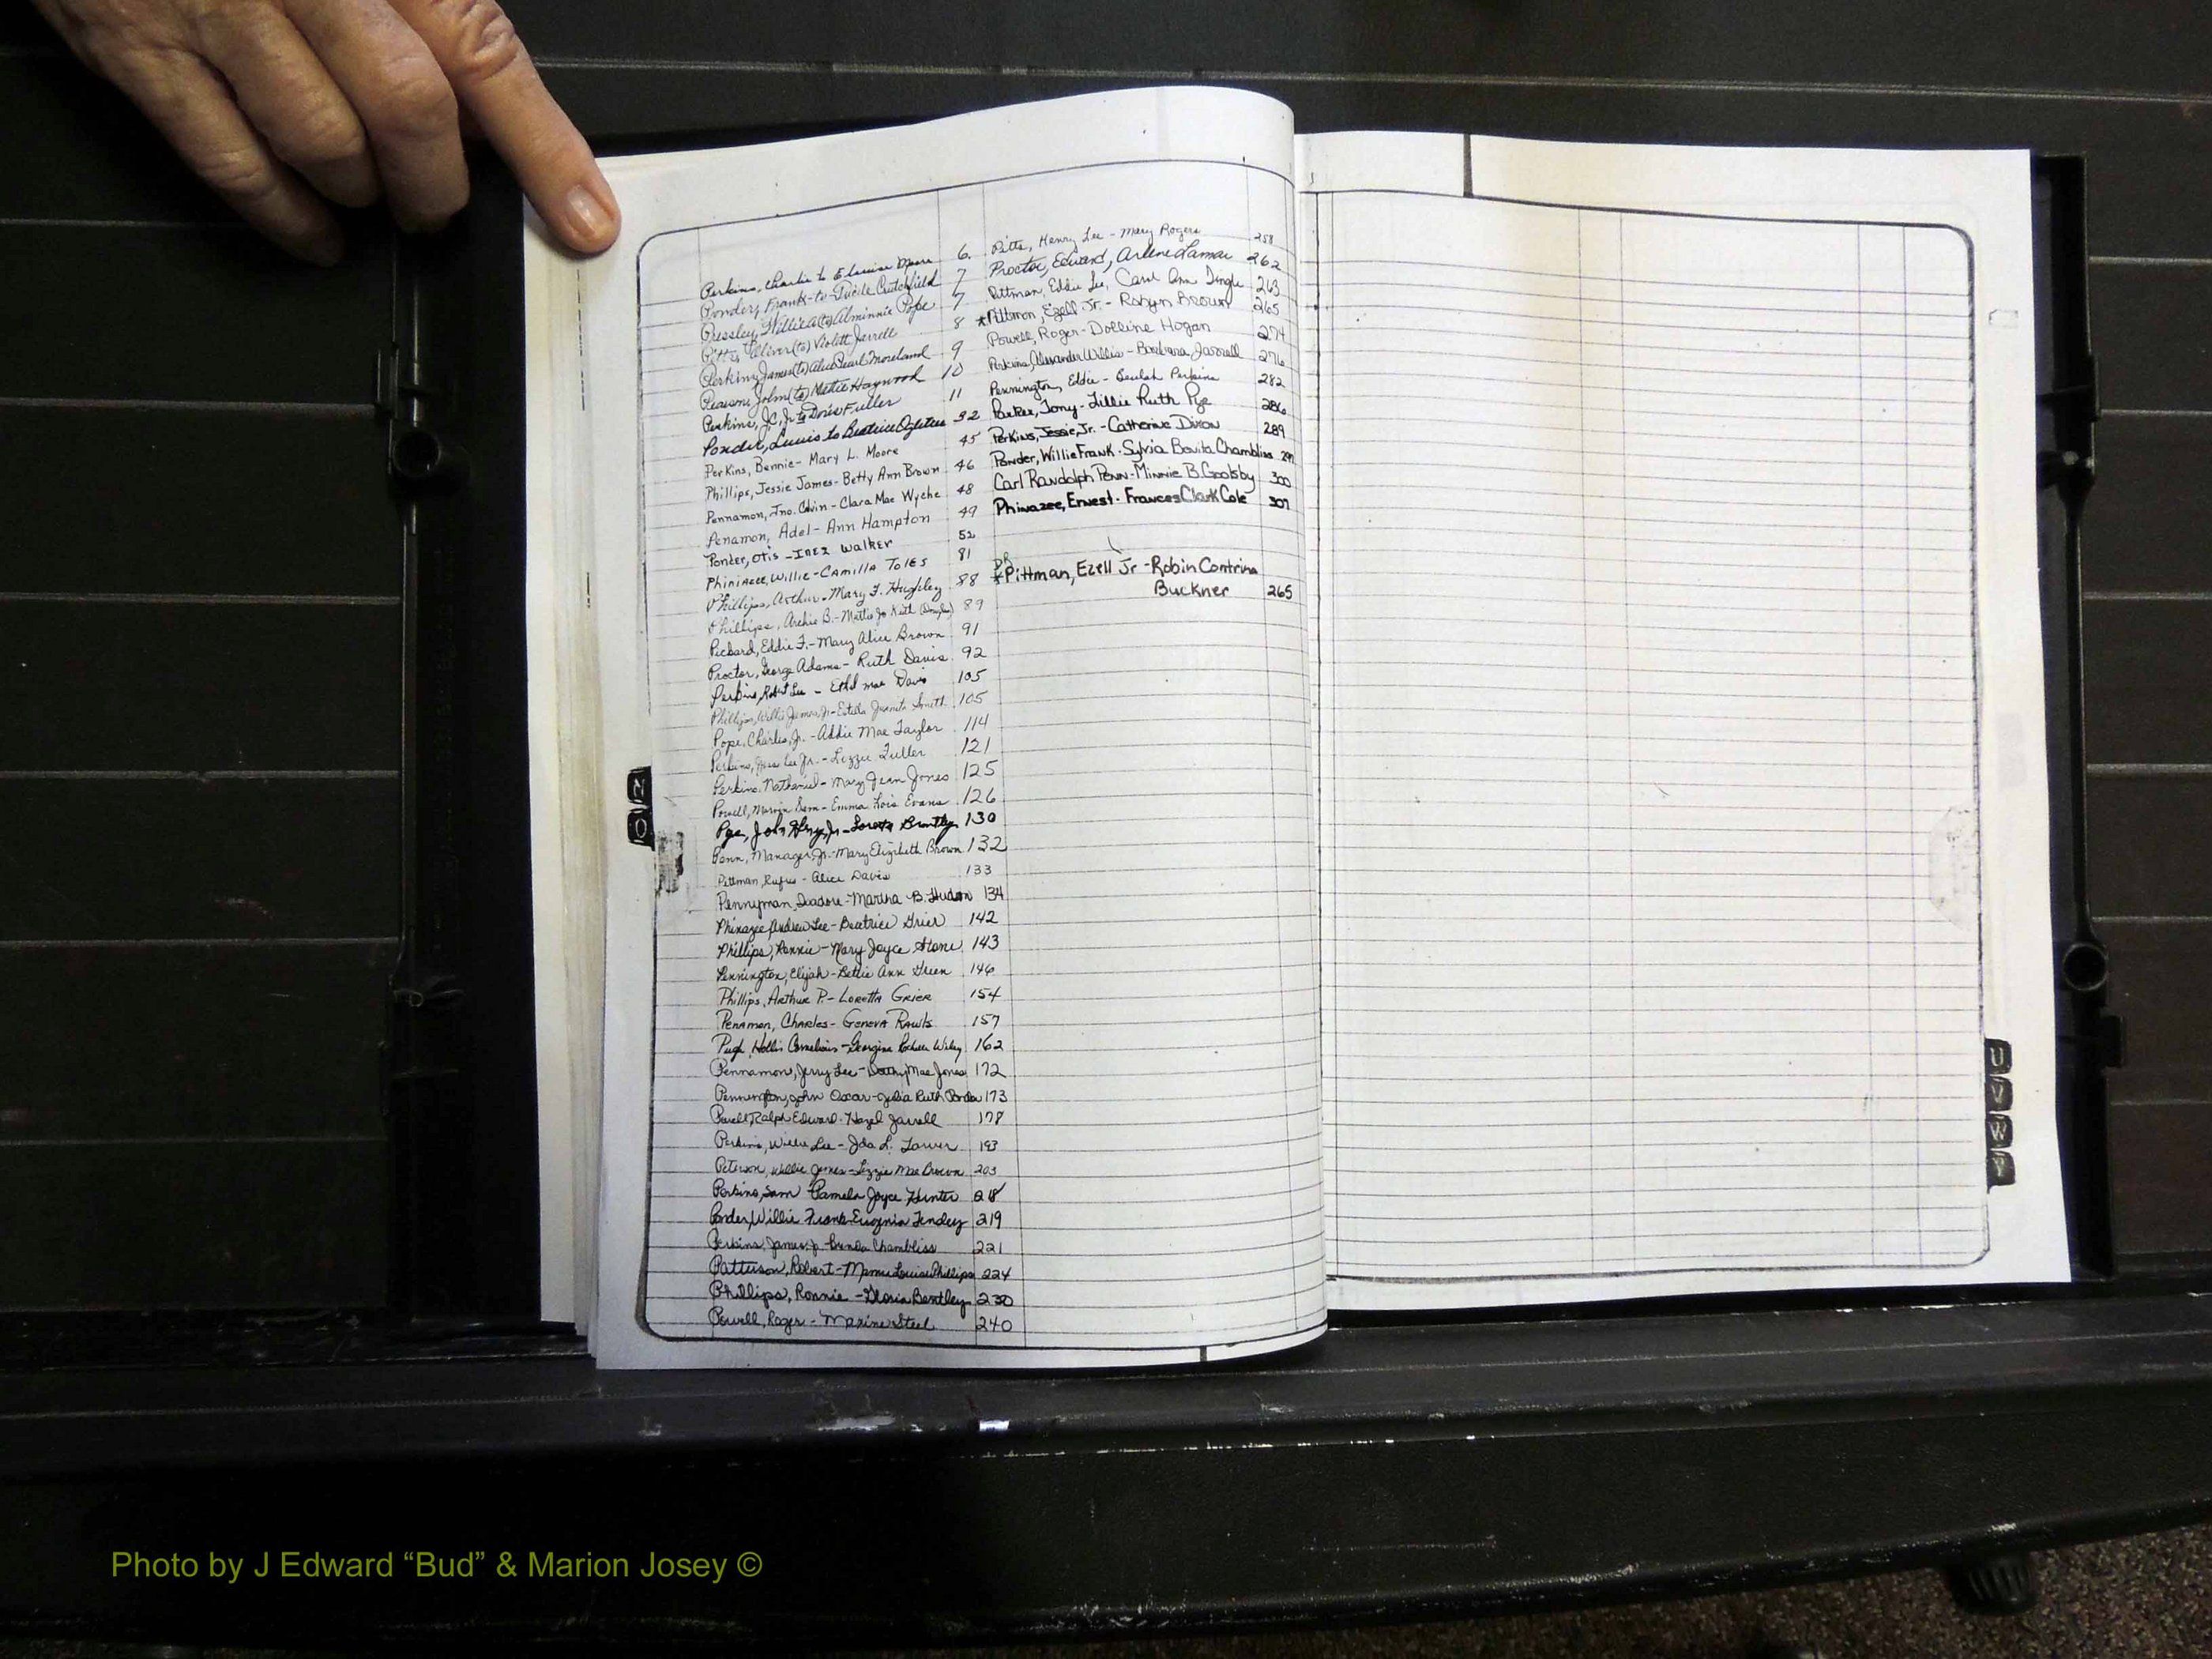 Perkins, Charlie to Elouise Moore 6.
Ponder, Frank-to-Lucile Crutchfield 7
Pressley, Willie A (to) Alminnie Pope 7
Pitts, Oliver (to) Violett Jarrell 8
Perkins, James (to) Alice Pearl Moreland 9
Pearson, John (to) Mattie Haywood 10
Perkins, J.C. Jr to Doris Fuller 11
Ponder, Lewis to Beatrice Ogletree 32
Perkins, Bennie- Mary L. Moore 45
Phillips, Jessie James- Betty Ann Brown 46
Pennamon, Jno. Calvin- Clara Mae Wyche 48
Penamon, Adel- Ann Hampton 49
Ponder, Otis -INEZ WalkEr 52
PhiniAzee, WilliE-CAMillA TolES 81
Phillips, Arthur-Mary F. Hughley 88
Phillips, Archie B.-Mattie Jo Keith (Douglas) 89
Pickard, Eddie F.-Mary Alice Brown 91
Proctor, George Adams- Ruth Davis 92
Perkins, Robt Lee - Ethel mae Davis 105
Phillips, Willie James, Jr-Estella Juanita Smith 105
Pope, Charles, Jr. -Addie Mae Taylor 114
Perkins, Lee Jr.-Lizzie Fuller 121
Perkins, Nathaniel- Mary Jean Jones 125
Powell, Marvin Sam- Emma Lois Evans 126
Pye, John Henry, Jr-Loretta Brantley 130
Penn, Manager, Jr.-Mary Elizabeth Brown 132
Pittman, Rufus - Alice Davis 133
Pennyman, Isadore-Martha B. Hudson 134
Phinazee, Andrew Lee-Beatrice Grier 142
Phillips, Ronnie-Mary Joyce Stone 143
Pennington, Elijah-Bettie Ann Green 146
Phillips, Arthur P.- Loretta Grier 154
Penamon, Charles- Geneva Rawls 157
Pugh, Hollis Cornelious-Georgina Wiley 162
Pennamon, Jerry Lee-Dorothy Mae Jones 172
Pennington, John Oscar-Julia Ruth Ponder 173
Powell, Ralph Edward-Hazel Jarrell 178
Perkins, Willie Lee- Ida L. Lawver 193
Peterson, Willie James-Lizzie Mae Brown 203
Perkins, Sam Pamela Joyce Hunter 218
Ponder, Willie Frank-Eugenia Tendey 219
Perkins, James, Jr. Brenda Chambliss 221
Patterson, Robert-Mamie Louise Phillips 224
Phillips, Ronnie -Gloria Bentley 230
Powell, Roger- Maxine Steel 240
Pitts, Henry Lee - Mary Rogers 258
Proctor, Edward, Arlene Lamar 262
Pittman, Eddie Lee, Carol Ann Dingle 263
*Pittman, Ezell Jr.- Robyn Brown 265
Powell, Roger-Dolline Hogan 274
Perkins, Alexander Willis-Barbara Jarrell 276
Pennington, Eddie- Beulah Perkins 282
Parker, Tony-Lillie Ruth Pye 286
Perkins, Jessie, Jr.-Catherine Dixon 289
Ponder, Willie Frank-Sylvia Bonita Chambliss
Carl Randolph Penn-Minnie B. Goolsby 300
Phinazee, Ernest-Frances Clark Cole 307
*Pittman, Ezell Jr -Robin Contrina
Buckner 265
U
V
W
Y
Photo by J Edward “Bud” & Marion Josey ©